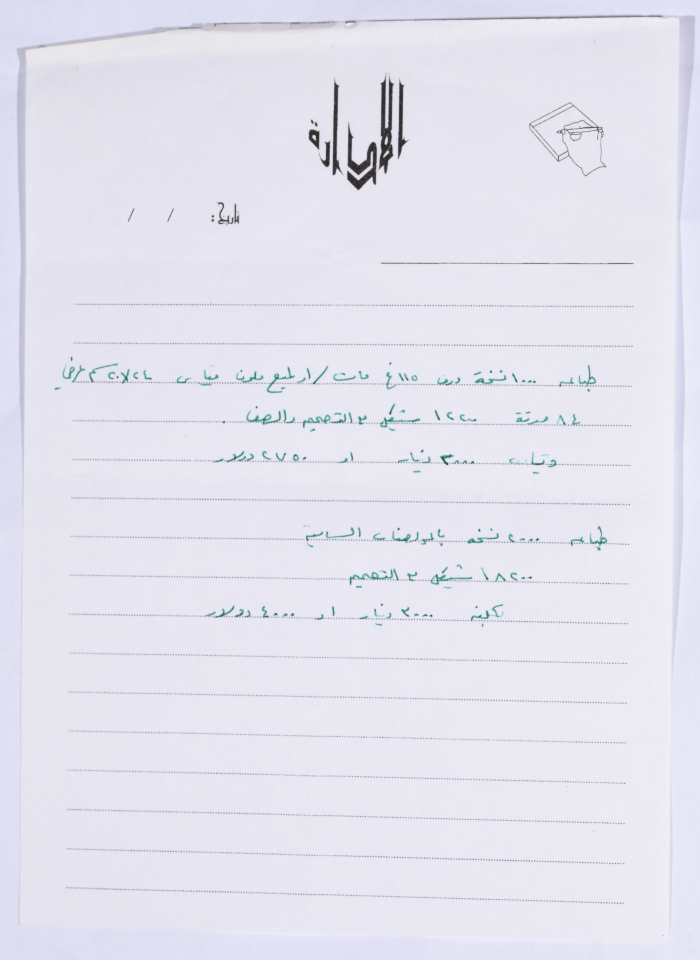 الإدارة
تاريخ: / /
طباعة ١٠٠٠ نسخة ورق ١١٥ غ مات / او لميع ملون قياس
٨٤ ورقة ١٢٢٠٠ شيكل مع التصميم والصف .
٣٠٠٠ دينار او ٢٧٥٠ دولار
طباعة ٢٠٠٠ نسخة بالمواصفات السابقة
١٨٢٠٠ شيكل مع التصميم
تكلفة ٣٠٠٠ دينار او ٤٠٠٠ دولار